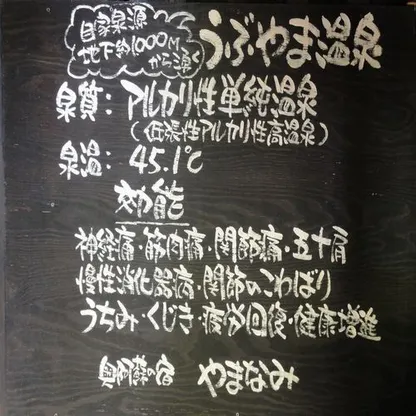 自家泉源
地下約1000M
から湧く
うぶやま温泉
泉質：アルカリ性単純温泉
（低張性アルカリ性高温泉）
泉温：45.1℃
効能
神経痛・筋肉痛・関節痛・五十肩
慢性消化器病・関節のこわばり
うちみ・くじき・疲労回復・健康増進
奥阿蘇の宿 やまなみ